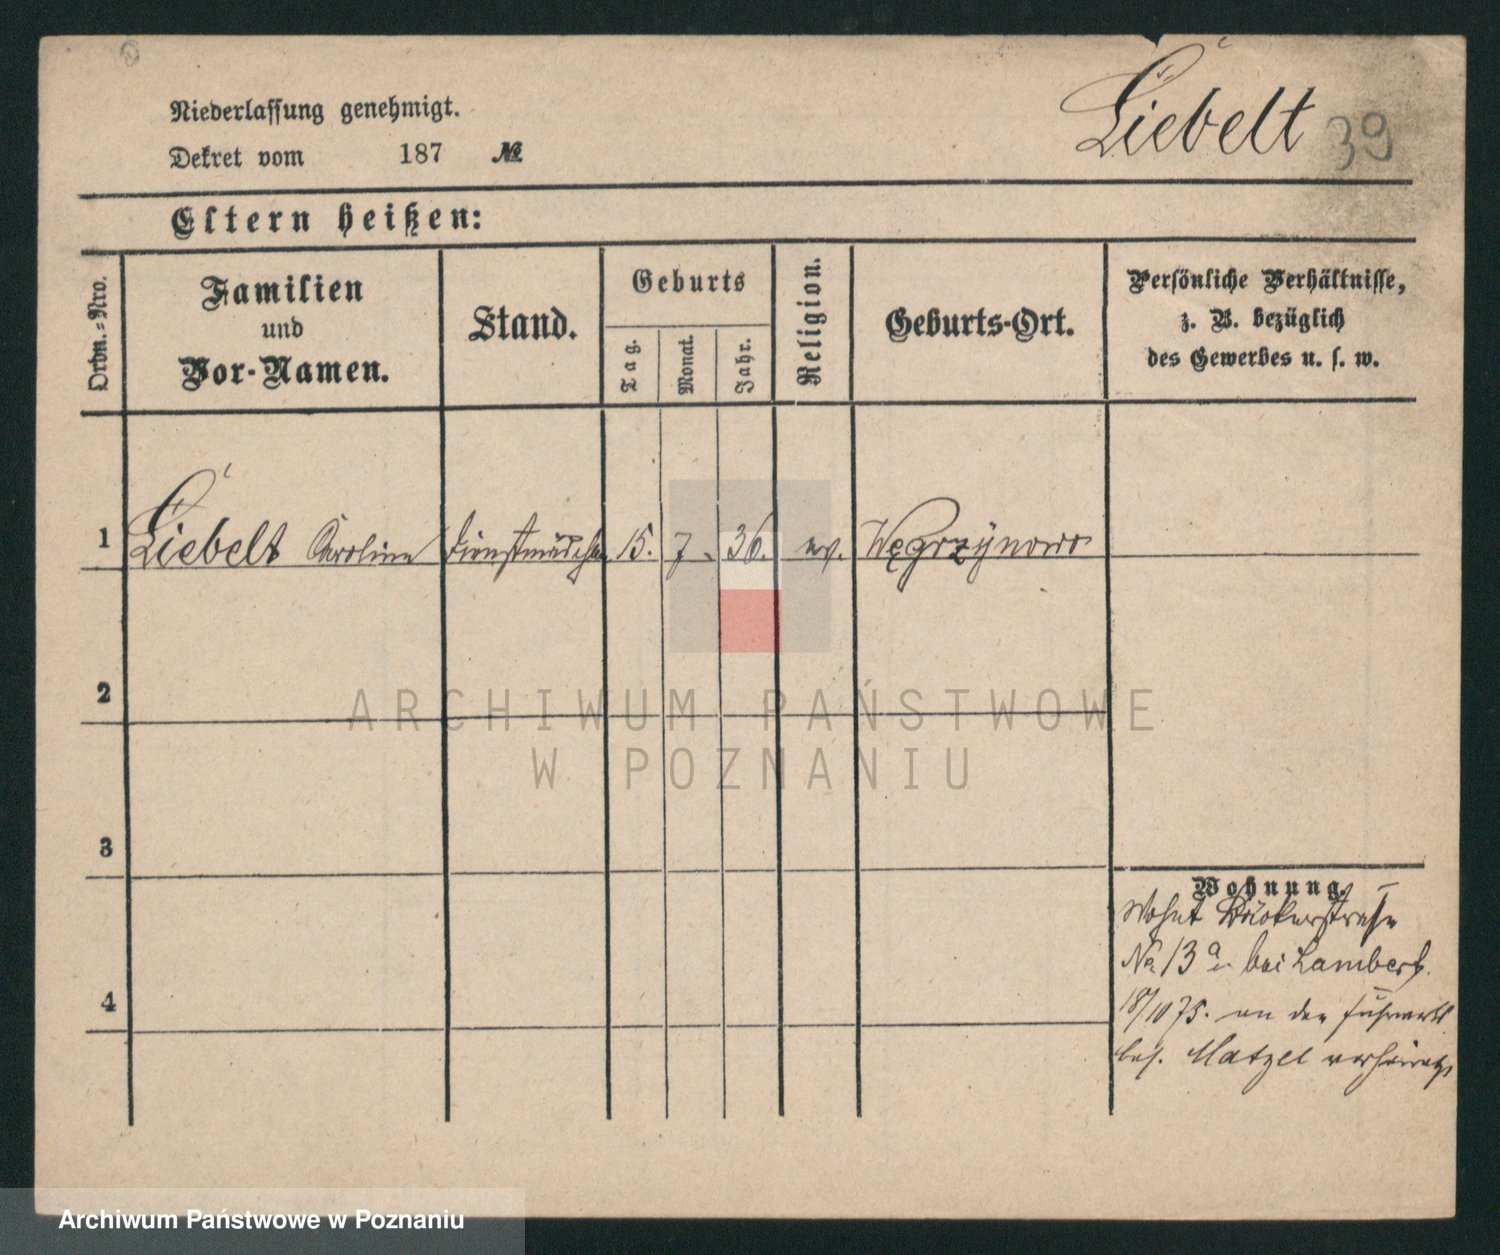 Liebelt 39
Niederlassung genehmigt.
Dekret vom 187 №
Eltern heißen:
Ordn.-Nro.
Familien
und
Vor-Namen.
Stand.
Geburts
Tag.
Monat.
Jahr.
Religion.
Geburts-Ort.
Persönliche Verhältnisse,
z. B. bezüglich
des Gewerbes u. s. w.
1 Liebelt Caroline Dienstmädchen 15. 7. 36. ev. Węgrzynowo
2
3
4
Wohnung.
Wohnt
No 13a bei Lambert.
18/10 75. an den Fuhrwerks
bes. Matzel verheirat
ARCHIWUM PAŃSTWOWE
W POZNANIU
Archiwum Państwowe w Poznaniu